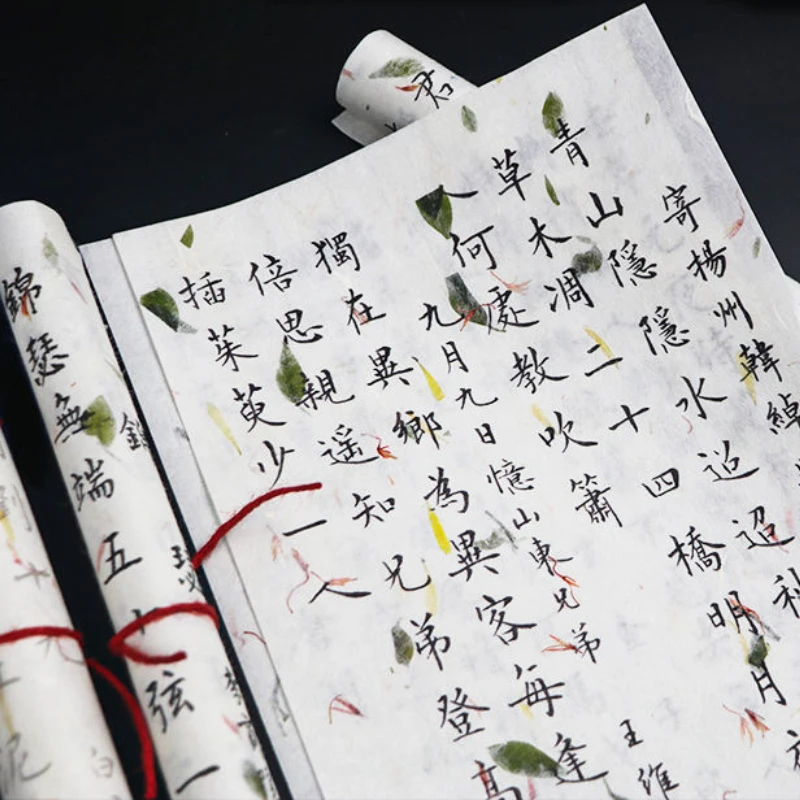 君
寄楊州韓綽
青山隱隱水迢迢秋
草木凋二十四橋明月夜
人何處教吹簫
九月九日憶山東兄弟 王維
獨在異鄉為異客每逢
倍思親遥知兄弟登高
插茱萸少一人
錦瑟
錦瑟無端五十弦一
劉十九
泥